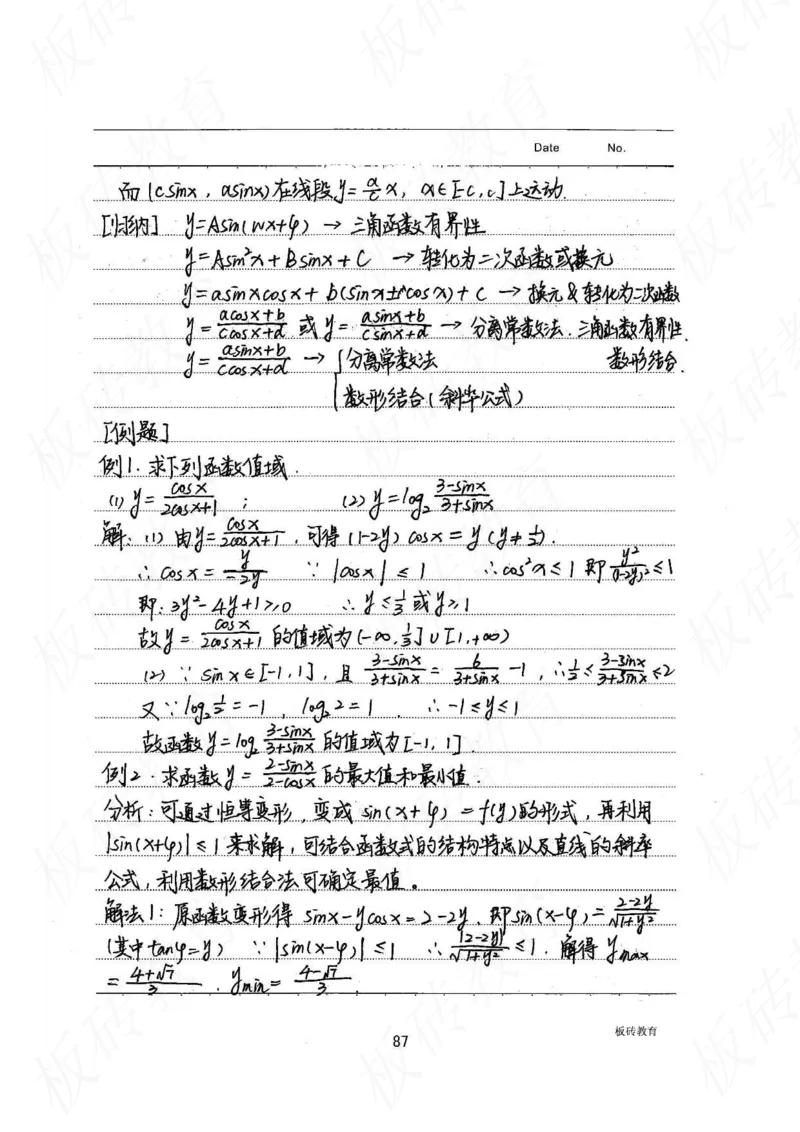 Date No.
而(csinx, asinx)在线段y=a/c x, x∈[-c,c]上运动.
[归纳] y=Asin(wx+φ) → 三角函数有界性
y=Asin²x+Bsinx+C → 转化为二次函数或换元
y=asinxcosx+b(sinx±cosx)+c → 换元&转化为二次函数
y=(acosx+b)/(ccosx+d) 或 y=(asinx+b)/(csinx+d) → 分离常数法.三角函数有界性.
y=(asinx+b)/(ccosx+d) → {分离常数法 数形结合.
数形结合(斜率公式)
[例题]
例1.求下列函数值域.
(1) y=cosx/(2cosx+1); (2) y=log₂ (3-sinx)/(3+sinx)
解:(1)由y=cosx/(2cosx+1),可得(1-2y)cosx=y(y≠½).
∴cosx=y/(-2y) ∵|cosx|≤1 ∴cos²x≤1即y²/(1-2y)²≤1
即:3y²-4y+1≥0 ∴y≤⅓或y≥1
故y=cosx/(2cosx+1)的值域为(-∞,⅓]∪[1,+∞)
(2)∵sinx∈[-1,1],且(3-sinx)/(3+sinx)=6/(3+sinx)-1,∴½≤(3-3inx)/(3+sinx)≤2
又∵log₂½=-1,log₂2=1.∴-1≤y≤1
故函数y=log₂ (3-sinx)/(3+sinx)的值域为[-1,1].
例2.求函数y=(2-sinx)/(2-cosx)的最大值和最小值.
分析:可通过恒等变形,变成sin(x+φ)=f(y)的形式,再利用
|sin(x+φ)|≤1来求解,可结合函数式的结构特点以及直线的斜率
公式,利用数形结合法可确定最值。
解法1:原函数变形得sinx-ycosx=2-2y.即sin(x-φ)=(2-2y)/√(1+y²)
(其中tanφ=y) ∵|sin(x-φ)|≤1 ∴|2-2y|/√(1+y²)≤1.解得ymax
=(4+√7)/3.ymin=(4-√7)/3.
板砖教育
87